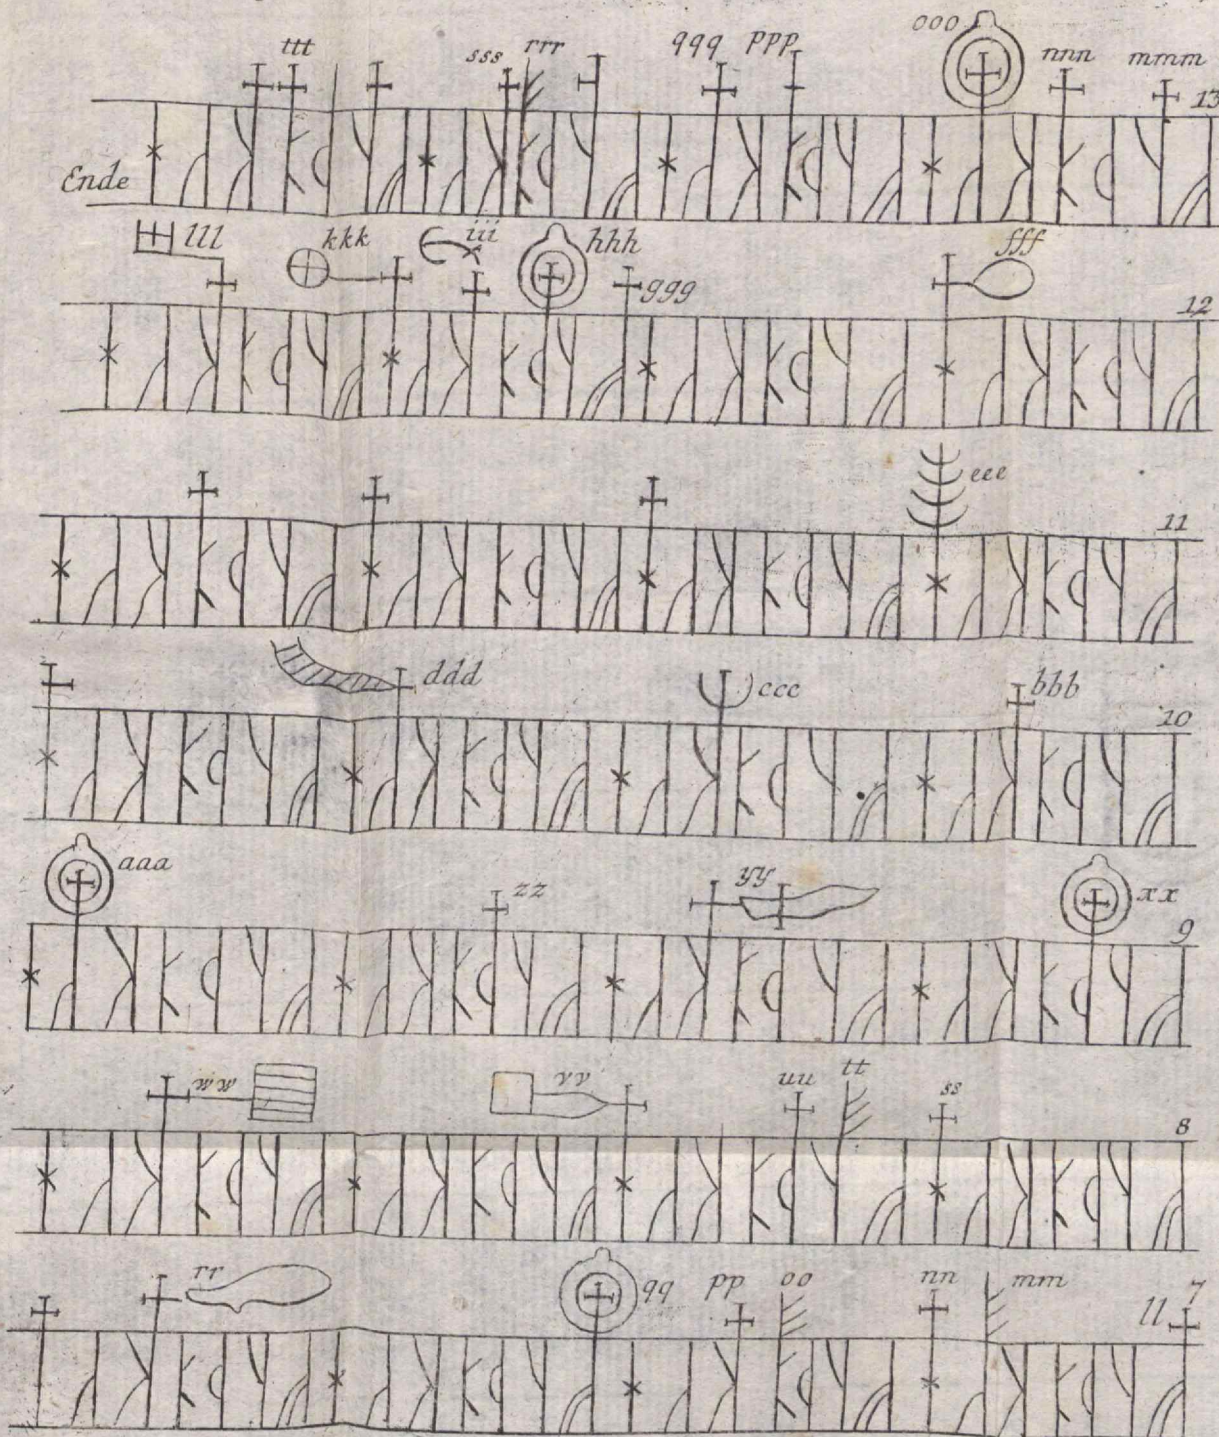 ttt sss rrr qqq ppp ooo nnn mmm
13
Ende
lll kkk iii hhh ggg fff
12
eee
11
ddd ccc bbb
10
aaa zz yy xx
9
ww vv uu tt ss
8
rr qq pp oo nn mm ll 7